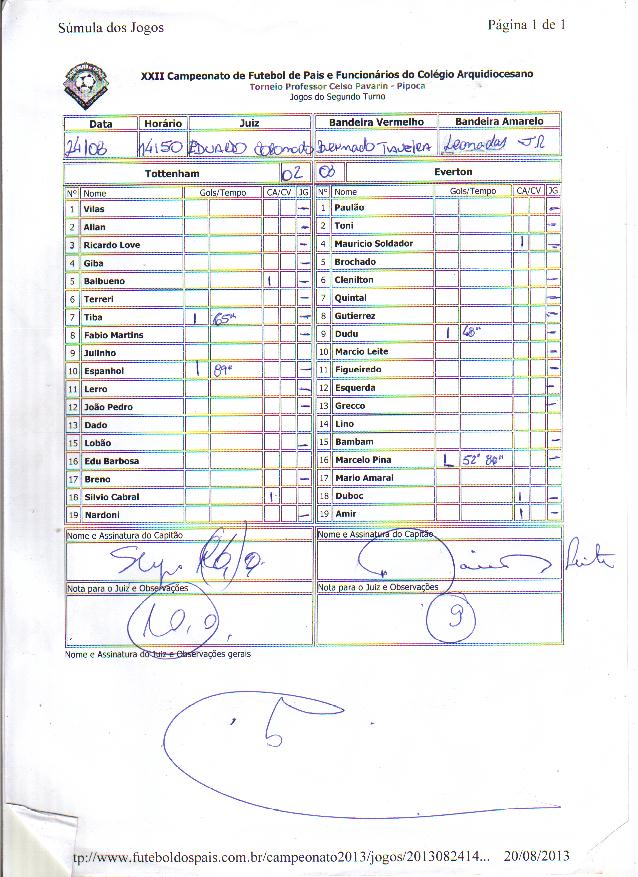 Súmula dos Jogos Página 1 de 1
XXII Campeonato de Futebol de Pais e Funcionários do Colégio Arquidiocesano
Torneio Professor Celso Pavarin - Pipoca
Jogos do Segundo Turno
Data Horário Juiz Bandeira Vermelho Bandeira Amarelo
24/08 14:50 EDUARDO Leonadas JR
Tottenham 02 03 Everton
Nº Nome Gols/Tempo CA/CV JG Nº Nome Gols/Tempo CA/CV JG
1 Vilas — 1 Paulão —
2 Allan — 2 Toni —
3 Ricardo Love — 4 Mauricio Soldador 1 —
4 Giba — 5 Brochado
5 Balbueno 1 — 6 Clenilton —
6 Terreri — 7 Quintal —
7 Tiba 1 65" — 8 Gutierrez —
8 Fabio Martins — 9 Dudu 1 48" —
9 Julinho 10 Marcio Leite —
10 Espanhol 1 89" — 11 Figueiredo —
11 Lerro — 12 Esquerda —
12 João Pedro — 13 Grecco —
13 Dado 14 Lino
15 Lobão — 15 Bambam —
16 Edu Barbosa — 16 Marcelo Pina 52" 80" —
17 Breno — 17 Mario Amaral
18 Silvio Cabral 1 18 Duboc 1 —
19 Nardoni — 19 Amir 1 —
Nome e Assinatura do Capitão Nome e Assinatura do Capitão
Leite
Nota para o Juiz e Observações Nota para o Juiz e Observações
10,0, 9
Nome e Assinatura do Juiz e Observações gerais
tp://www.futeboldospais.com.br/campeonato2013/jogos/2013082414... 20/08/2013